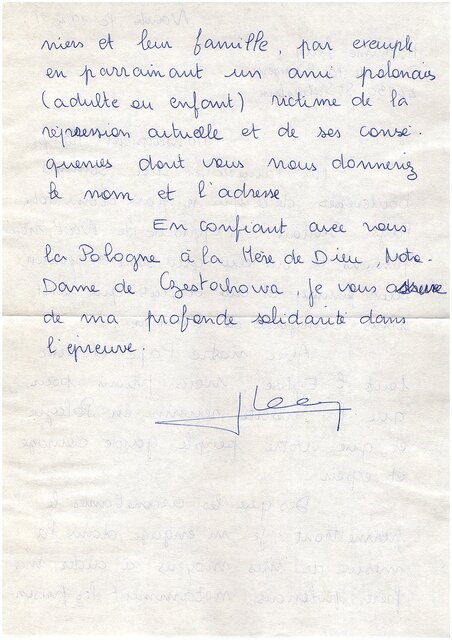 niers et leur famille, par exemple
en parrainant un ami polonais
(adulte ou enfant) victime de la
répression actuelle et de ses consé-
quences dont vous nous donneriez
le nom et l'adresse
En confiant avec vous
la Pologne à la Mère de Dieu, Notre-
Dame de Czestochowa, je vous assure
de ma profonde solidarité dans
l'épreuve.